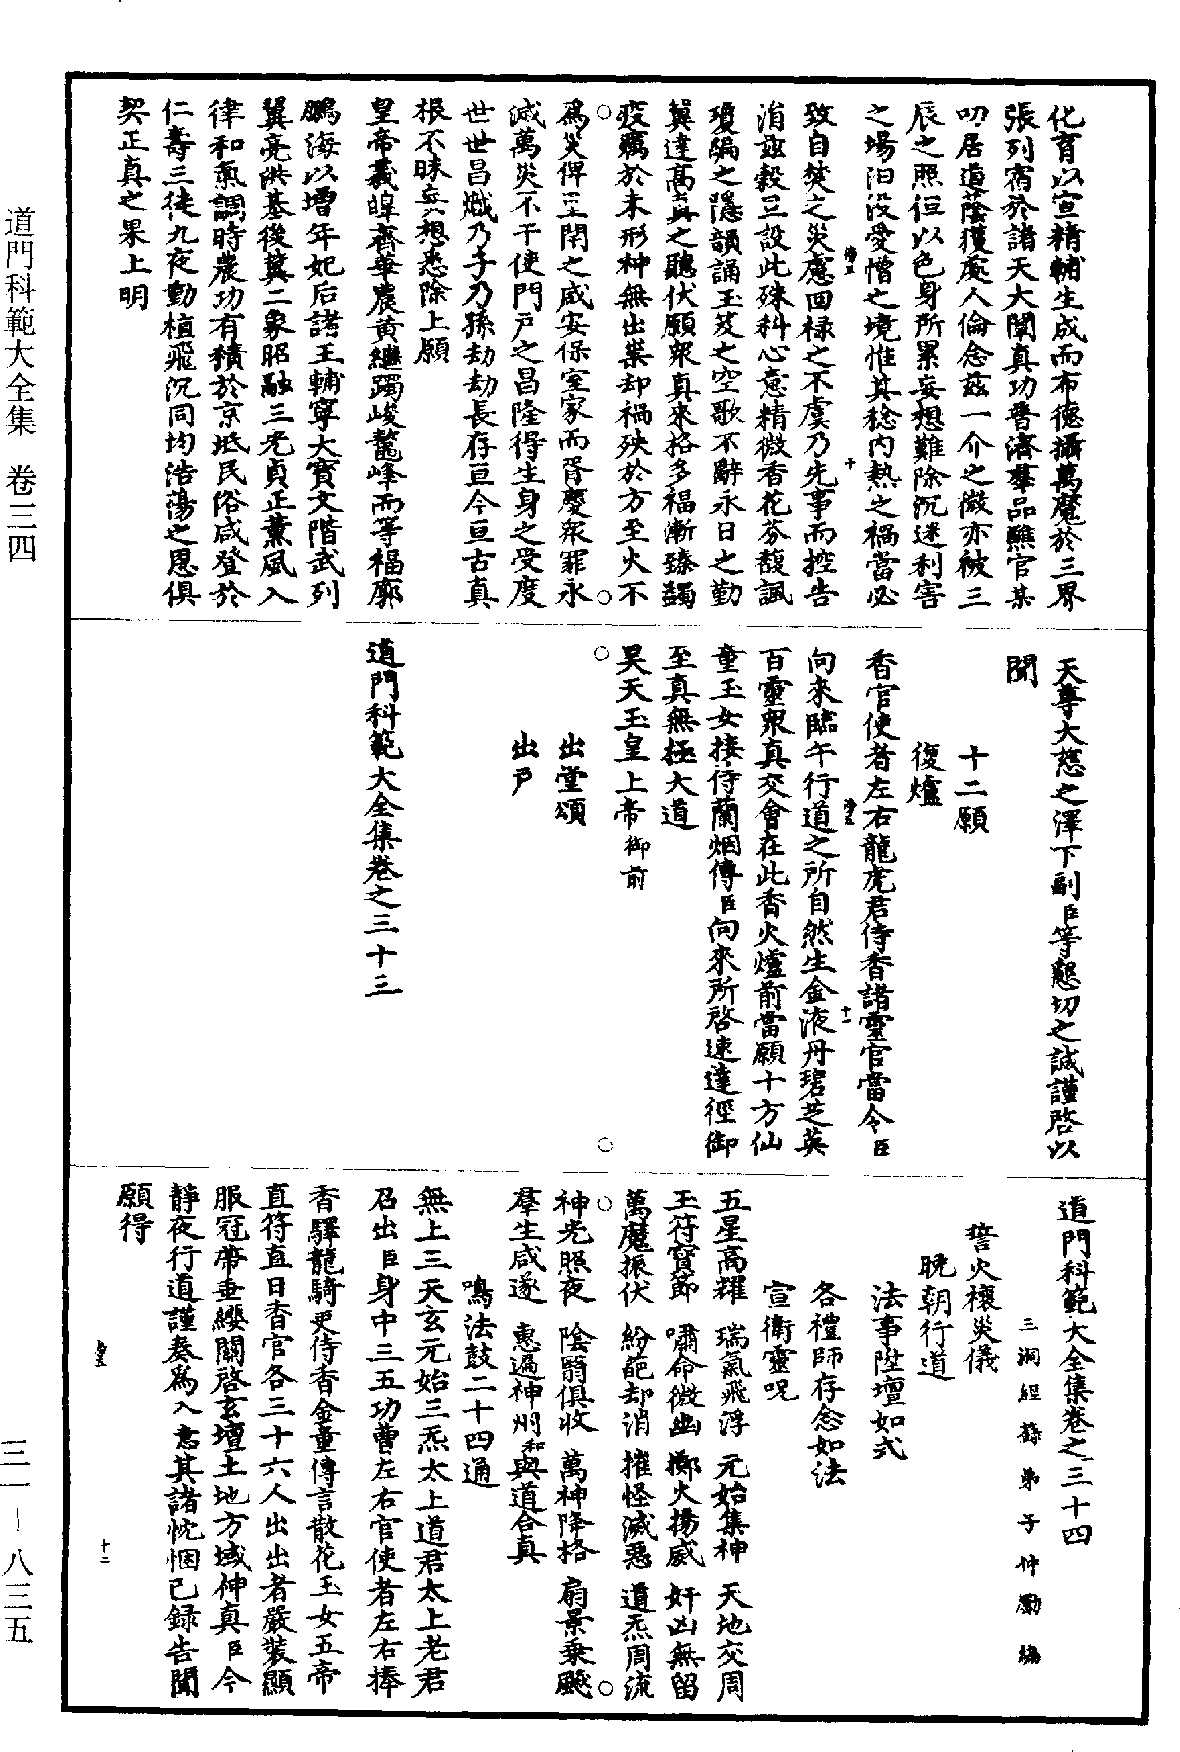 化育以宣精輔生成而布德攝萬魔於三界
張列宿於諸天大闡真功普濟羣品醮官某
叨居道蔭獲處人倫念茲一介之微亦被三
辰之照但以色身所累妄想難除沉迷利害
之場汨没愛憎之境惟其稔内熱之禍當必
致自焚之災慮回禄之不虞乃先事而控告
涓兹穀旦設此殊科心意精微香花芬馥諷
瓊編之隱韻誦玉笈之空歌不辭永日之勤
冀達高真之聽伏願衆真來格多福漸臻蠲
疫癘於未形神無出祟却禍殃於方至火不
爲災俾三閉之咸安保室家而胥慶衆罪永
滅萬災不干使門戸之昌隆得生身之受度
世世昌熾乃子乃孫劫劫長存亘今亘古真
根不昧妄想悉除上願
皇帝羲皥齊華農黄繼躅峻鼇峰而等福廓
鵬海以增年妃后諸王輔寧大寳文階武列
翼亮洪基後冀二象昭融三光貞正薰風入
律和氣調時農功有積於京坻民俗咸登於
仁壽三徒九夜動植飛沉同均浩蕩之恩俱
契正真之果上明
天尊大慈之澤下副臣等懇切之誠謹啓以
聞
十二願
復爐
香官使者左右龍虎君侍香諸靈官當令臣
向來臨午行道之所自然生金液丹碧芝英
百靈衆真交會在此香火爐前當願十方仙
童玉女接侍蘭烟傳臣向來所啓速達徑御
至真無極大道
昊天玉皇上帝御前
出堂頌
出戸
道門科範大全集卷之三十三
道門科範大全集卷之三十四
三洞經籙弟子仲勵編
誓火禳災儀
晚朝行道
法事陞壇如式
各禮師存念如法
宣衛靈呪
五星高耀 瑞氣飛浮 元始集神 天地交周
玉符寳節 嘯命微幽 擲火揚威 奸凶無留
萬魔振伏 紛葩却消 摧怪滅惡 道炁周流
神光照夜 陰翳俱收 萬神降格 扇景乘飈
羣生咸遂 惠遍神州和與道合真
鳴法鼓二十四通
無上三天玄元始三炁太上道君太上老君
召出臣身中三五功曹左右官使者左右捧
香驛龍騎吏侍香金童傳言散花玉女五帝
直符直日香官各三十六人出出者嚴裝顯
服冠帶垂纓關啓玄壇土地方域神真臣今
靜夜行道謹奏爲入意其諸忱悃已録告聞
願得
道門科範大全集 卷三四
三一－八三五